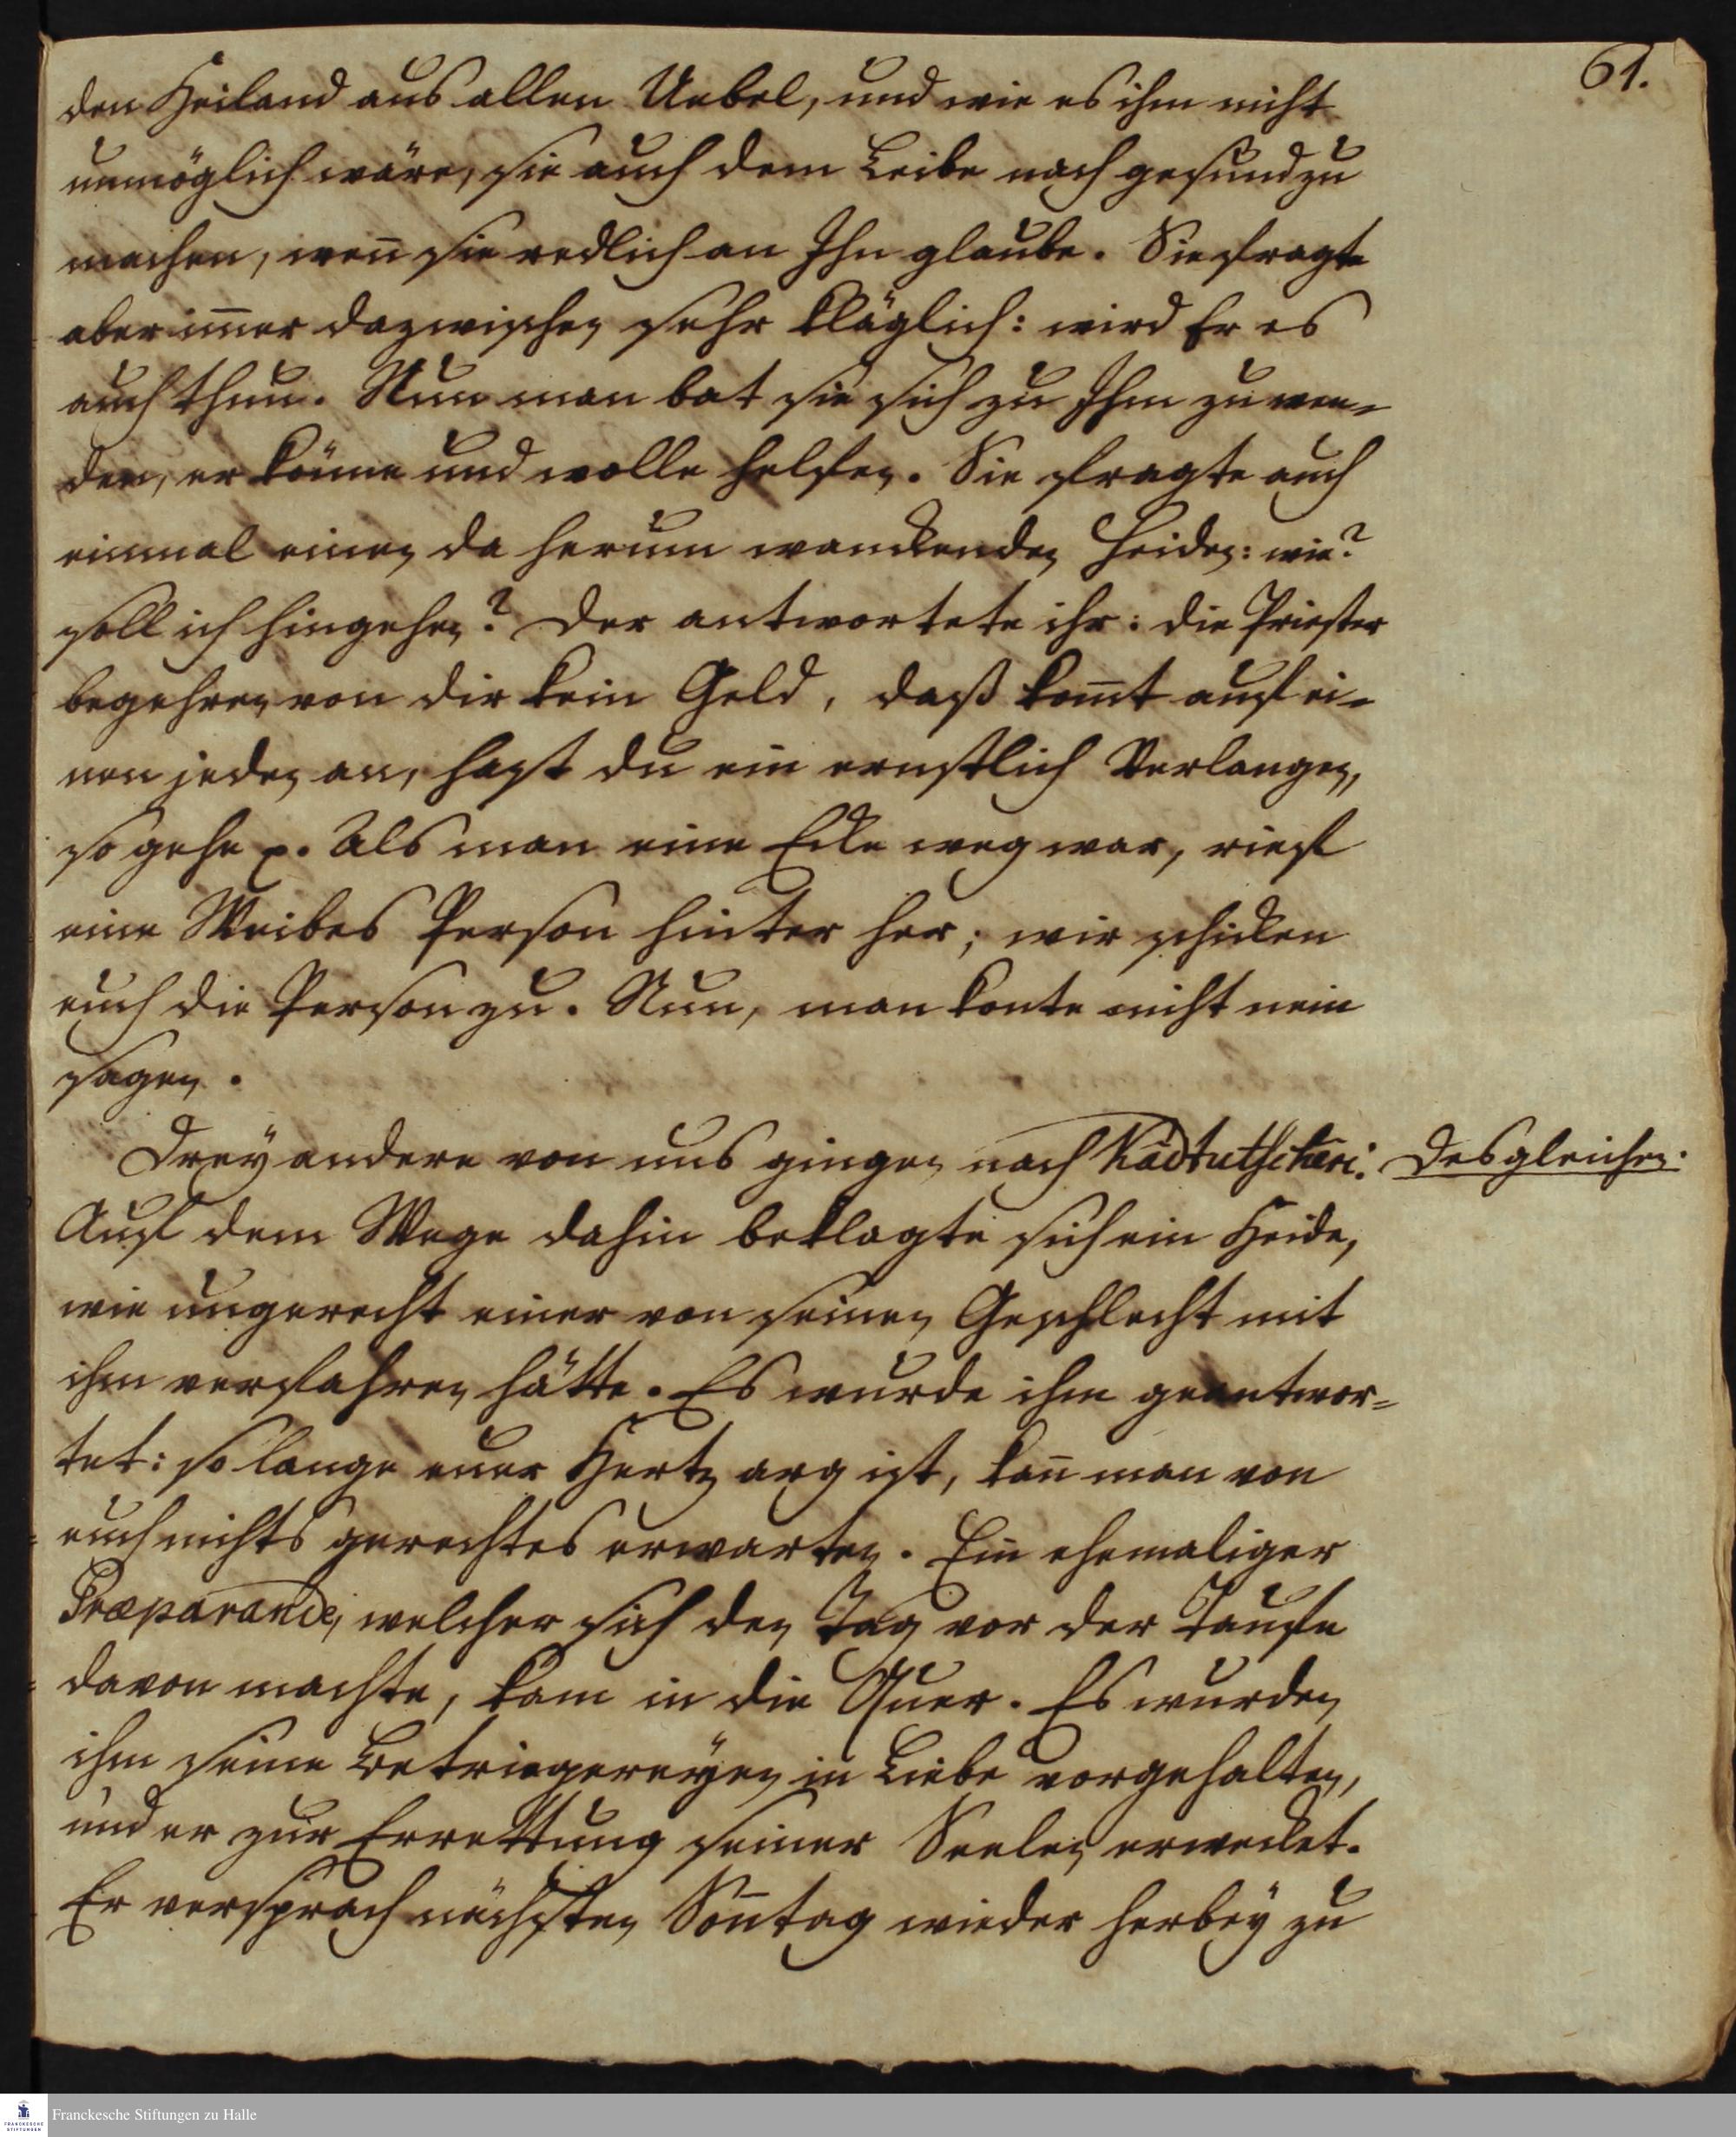 61.
den Heiland aus allen Uebel, und wie es ihm nicht
unmöglich wäre, sie auch dem Leibe nach gesund zu
machen, weñ sie redlich an Ihn glaube. Sie fragte
aber im̃er dazwischen sehr kläglich: wird Er es
auch thun. Nun man bat sie sich zu Ihm zu wen-
den, er könne und wolle helfen. Sie fragte auch
einmal einen da herum wanckenden Heiden: wie?
soll ich hingehen? Der antwortete ihr: die Priester
begehren von dir kein Geld, daß kom̃t auf ei-
nen jeden an, hast du ein ernstlich Verlangen,
so gehe p. Als man eine Ecke weg war, rief
eine Weibes Person hinter her; wir schicken
euch die Person zu. Nun, man konte nicht nein
sagen.
Drey andere von uns gingen nach Kádtutschēri. Desgleichen.
Auf dem Wege dahin beklagte sich ein Heide,
wie ungerecht einer von seinen Geschlecht mit
ihm verfahren hätte. Es wurde ihm geantwor-
tet: so lange euer Hertz arg ist, kañ man von
euch nichts gerechtes erwarten. Ein ehemaliger
Præparande, welcher sich den Tag vor der Taufe
davon machte, kam in die Quer. Es wurden
ihm seine Betriegereyen in Liebe vorgehalten,
und er zur Errettung seiner Seelen erwecket.
Er versprach nächsten Soñtag wieder herbey zu
Franckesche Stiftungen zu Halle